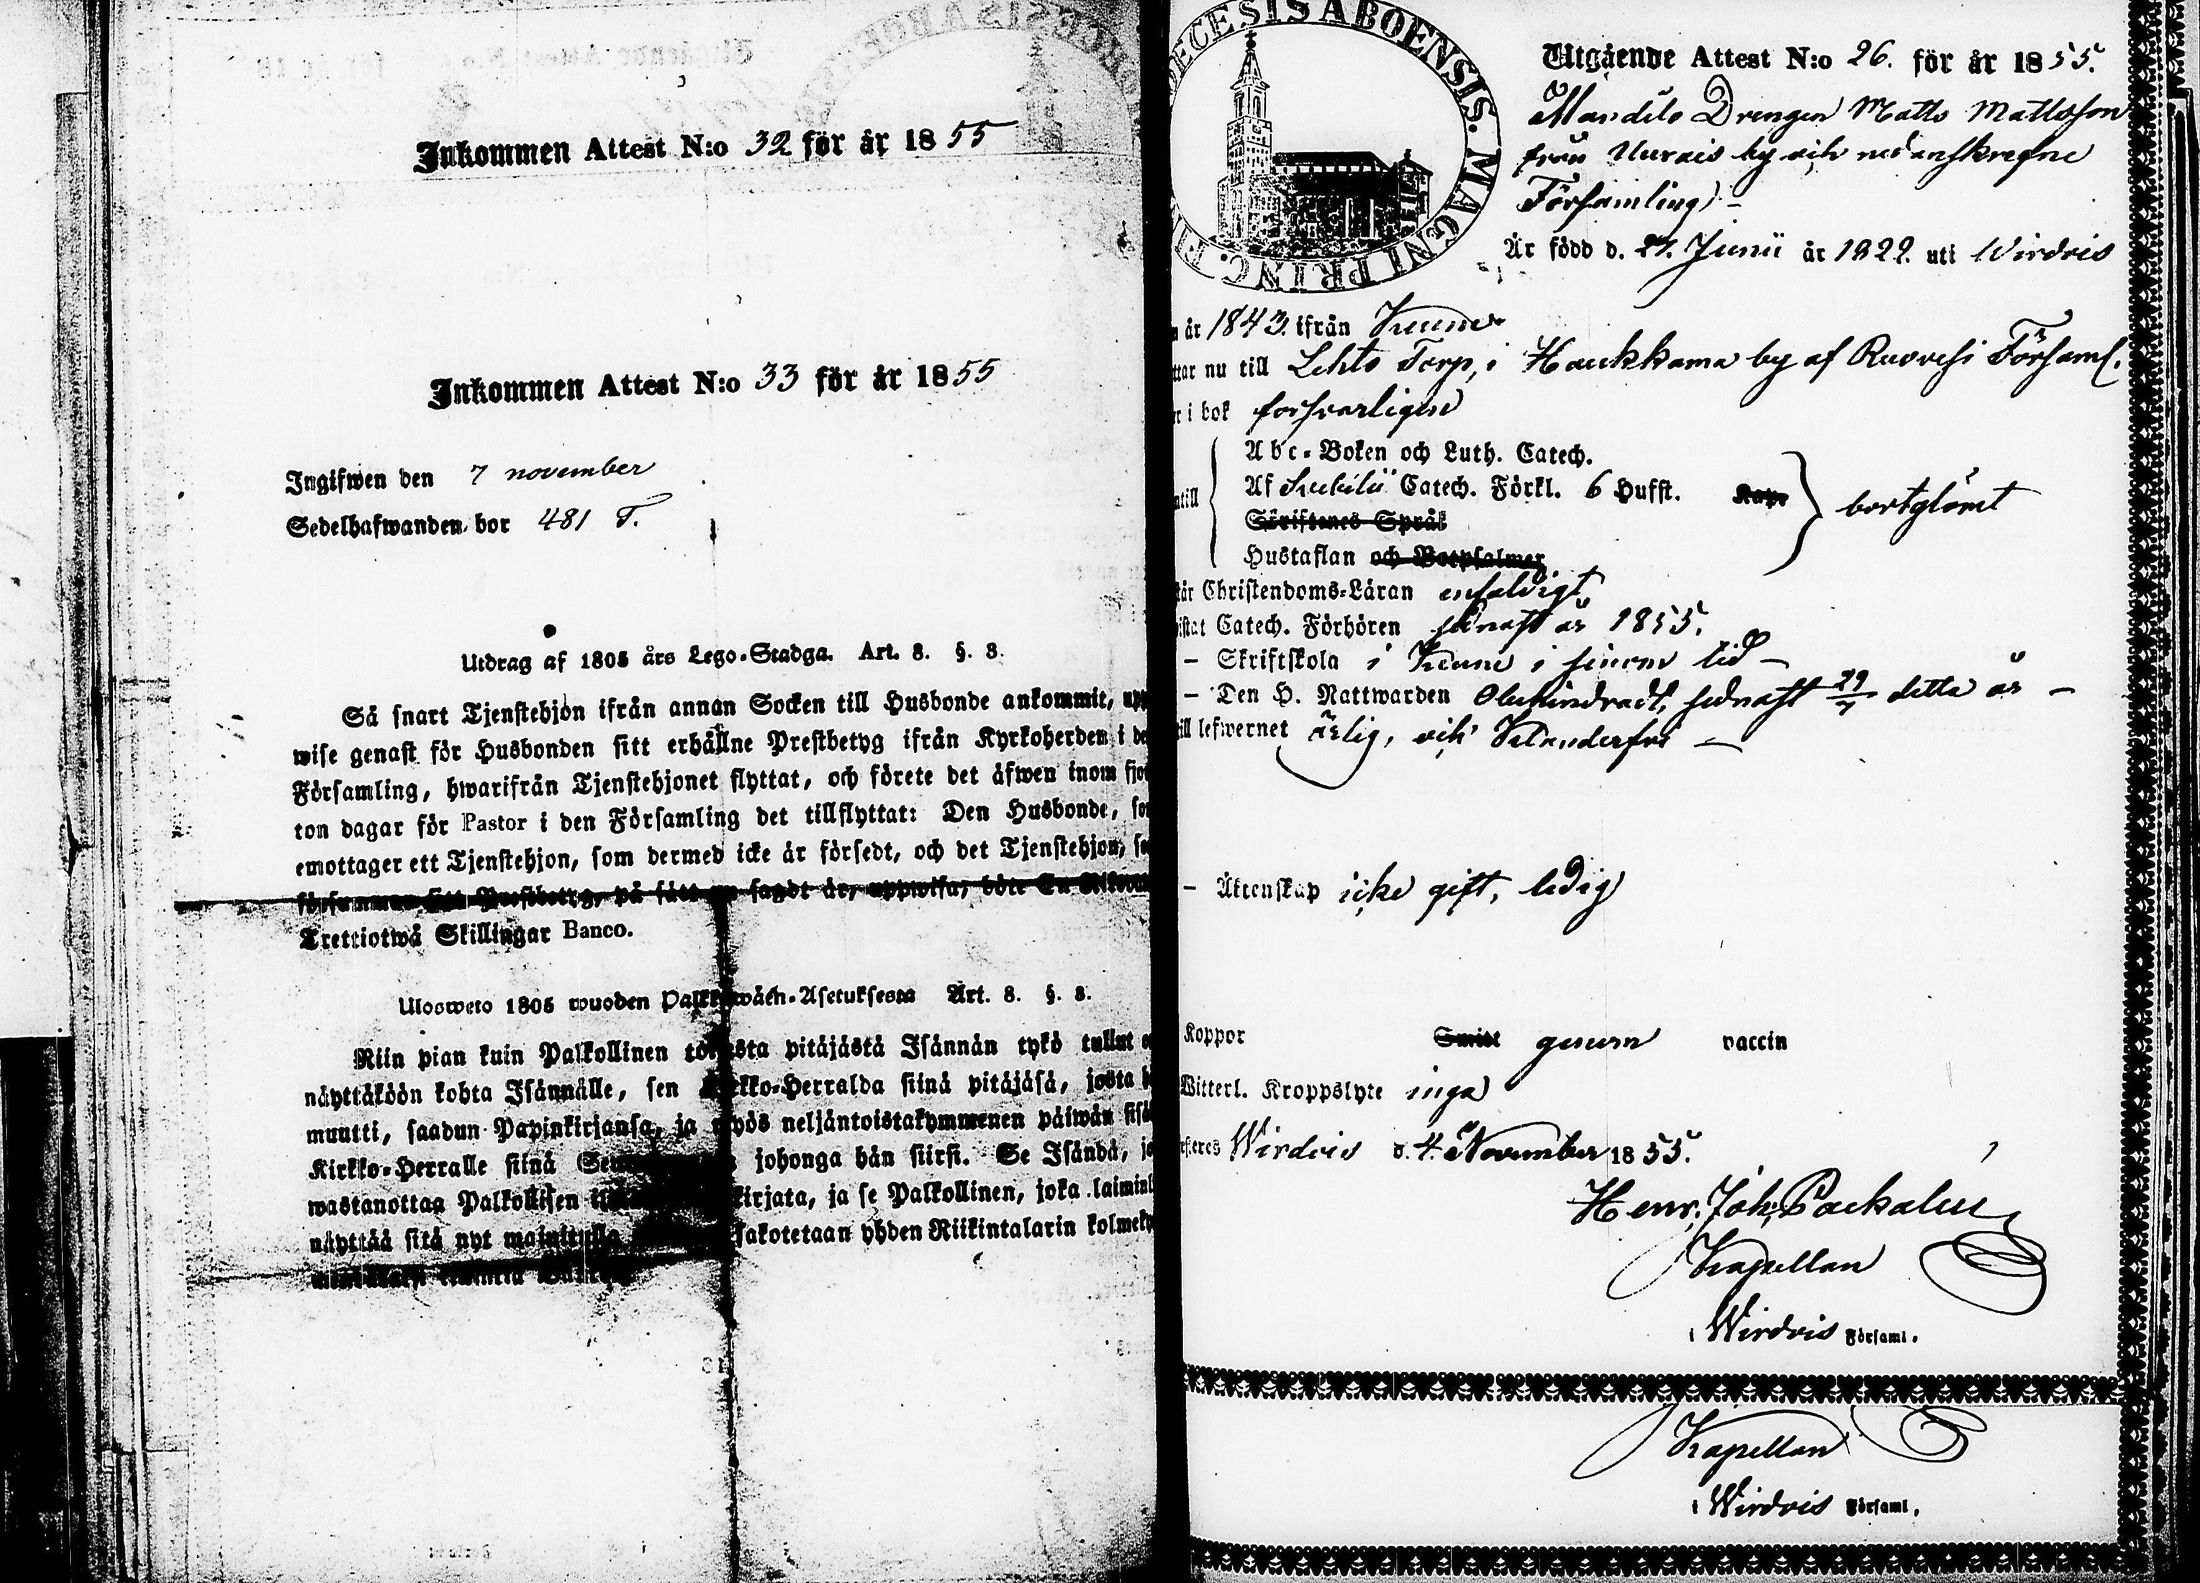 Inkommen Attest N:o 32 för år 1855
Inkommen Attest N:o 33 för år 1855
Ingifwen den 7 november
Sedelhafwanden bor 481 T.
Utdrag af 1805 års Lego-Stadga. Art. 8. §. 8.
Så snart Tjenstehjon ifrån annan Socken till Husbonde ankommit,
wise genast för Husbonden sitt erhållne Prestbetyg ifrån Kyrkoherden i
Församling, hwarifrån Tjenstehjonet flyttat, och förete det äfwen inom
ton dagar för Pastor i den Församling det tillflyttat: Den Husbonde,
emottager ett Tjenstehjon, som dermed icke är försedt, och det Tjenstehjon,
försummar sitt Prestbetyg, på sätt nu sagdt är, uppwisa, böte En
Trettiotwå Skillingar Banco.
Ulosweto 1805 wuoden Palkkawäen-Asetuksesta Art. 8. §. 8.
Niin pian kuin Palkollinen toisesta pitäjästä Isännän tykö tullut
näyttäköön kohta Isännälle, sen Kirkko-Herralda siinä pitäjäsä, josta
muutti, saadun Papinkirjansa, ja myös neljäntoistakymmenen päiwän
Kirkko-Herralle siinä johonga hän siirsi. Se Isändä,
wastanottaa Palkollisen kirjata, ja se Palkollinen, joka
näyttää sitä nyt mainitulla sakotetaan yhden Riikintalarin
DIECESIS ABOENSIS. MAGNI PRINC. F
Utgående Attest N:o 26. för år 1855.
Drengen Matts Mattsson
från Uurais by och nedanskrefne
Församling
Är född d. 27. Junii år 1822. uti Wirdois
år 1843. ifrån Keuru
nu till Lehto Torp, i Haukkama by af Ruovesi Församl.
i bok försvarligen
Abc-Boken och Luth. Catech.
Af Catech. Förkl. 6 Hufst.
Skriftenes Språk
Hustaflan och Botpsalmer
bortglömt
Christendoms-Läran enfaldigt,
Catech. Förhören sednast år 1855.
– Skriftskola i Keuru i sinom tid –
– Den H. Nattwarden Obehindradt, sednast 29/7 detta år –
till lefwernet ärlig, och –
– Äktenskap icke gift, ledig
Koppor genom vaccin
Witterl. Kroppslyte inga
Wirdois d. 4. November 1855.
Henr. Joh.
Kapellan
i Wirdois Församl.
Kapellan
i Wirdois Församl.